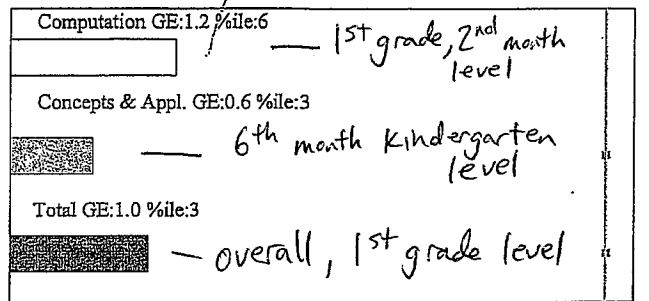 Computation GE:1.2 %ile:6
— 1st grade, 2nd month
level
Concepts & Appl. GE:0.6 %ile:3
— 6th month Kindergarten
level
Total GE:1.0 %ile:3
— overall, 1st grade level